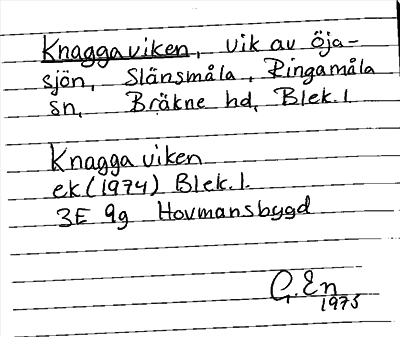 Knaggaviken, vik av Öja-
sjön, Slänsmåla, Ringamåla
sn, Bräkne hd, Blek. l.
Knaggaviken
ek (1974) Blek. l.
3E 9g Hovmansbygd
G. En
1975